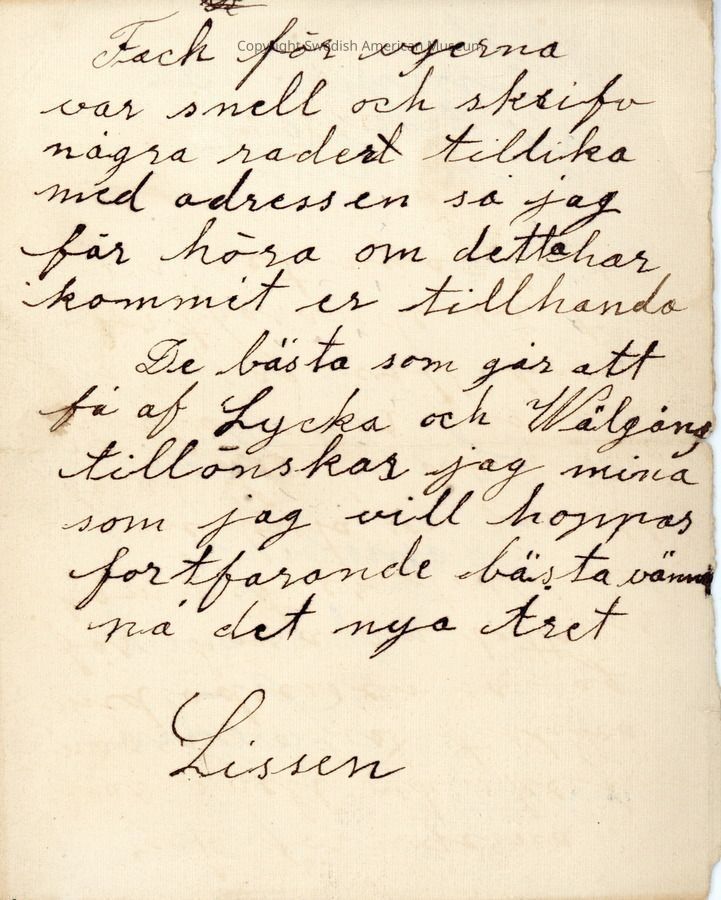 Copyright Swedish American Museum
Tack för
var snell och skrifv
några rader tillika
med adressen så jag
får höra om detta har
kommit er tillhanda
De bästa som går att
få af Lycka och Wälgång
tillönskar jag mina
som jag vill hoppas
fortfarande bästa vänner
på det nya Året
Lissen